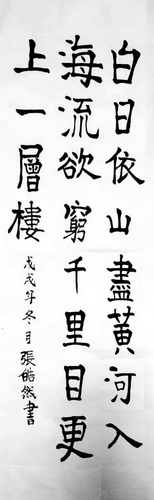 白日依山盡黃河入
海流欲窮千里目更
上一層樓
戊戌年冬月張皓然書